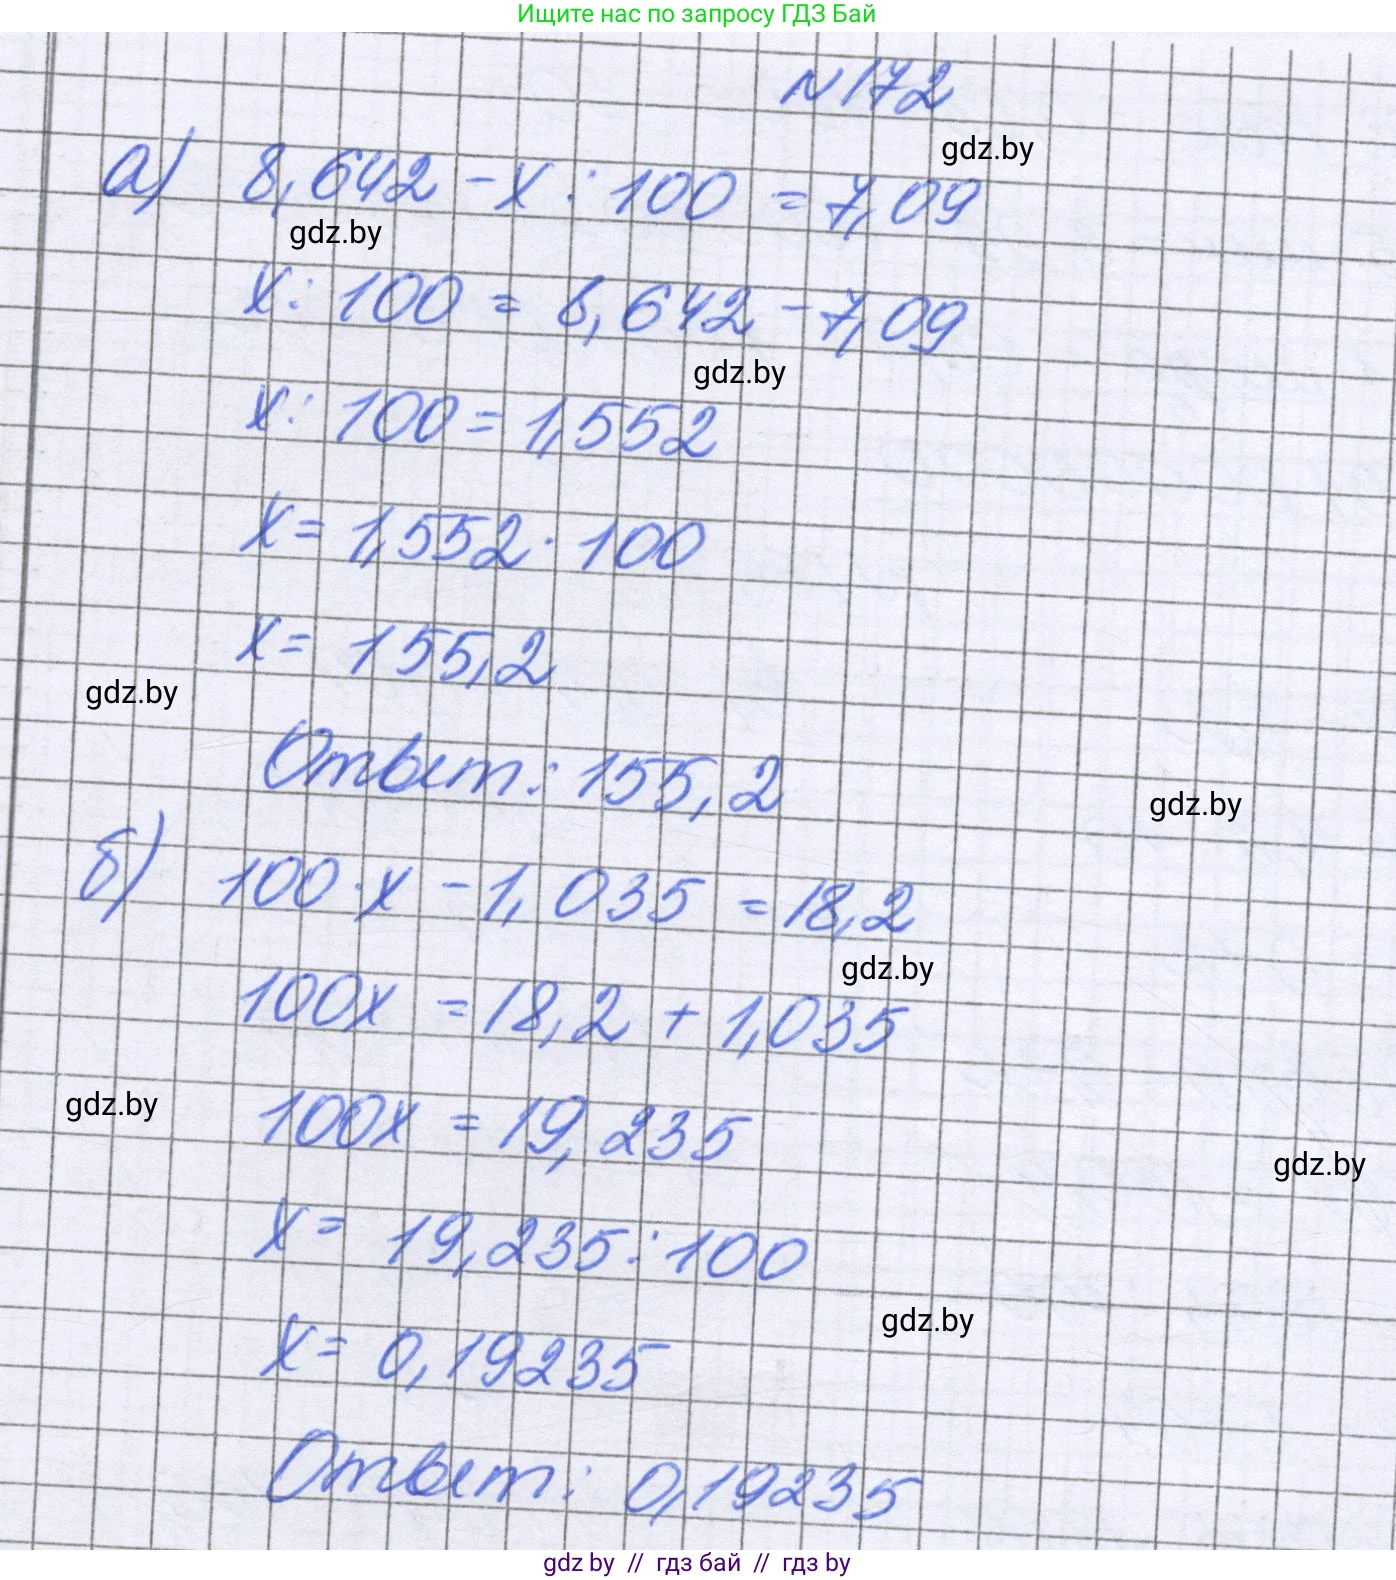 Ищите нас по запросу ГДЗ Бай
N 172
gdz.by
а) 8,642 - х : 100 = 7,09
gdz.by
х : 100 = 8,642 - 7,09
gdz.by
х : 100 = 1,552
х = 1,552 · 100
х = 155,2
gdz.by
Ответ: 155,2
gdz.by
б) 100 · х - 1,035 = 18,2
gdz.by
100х = 18,2 + 1,035
gdz.by
100х = 19,235
gdz.by
х = 19,235 : 100
gdz.by
х = 0,19235
Ответ: 0,19235
gdz by // гдз бай // гдз by